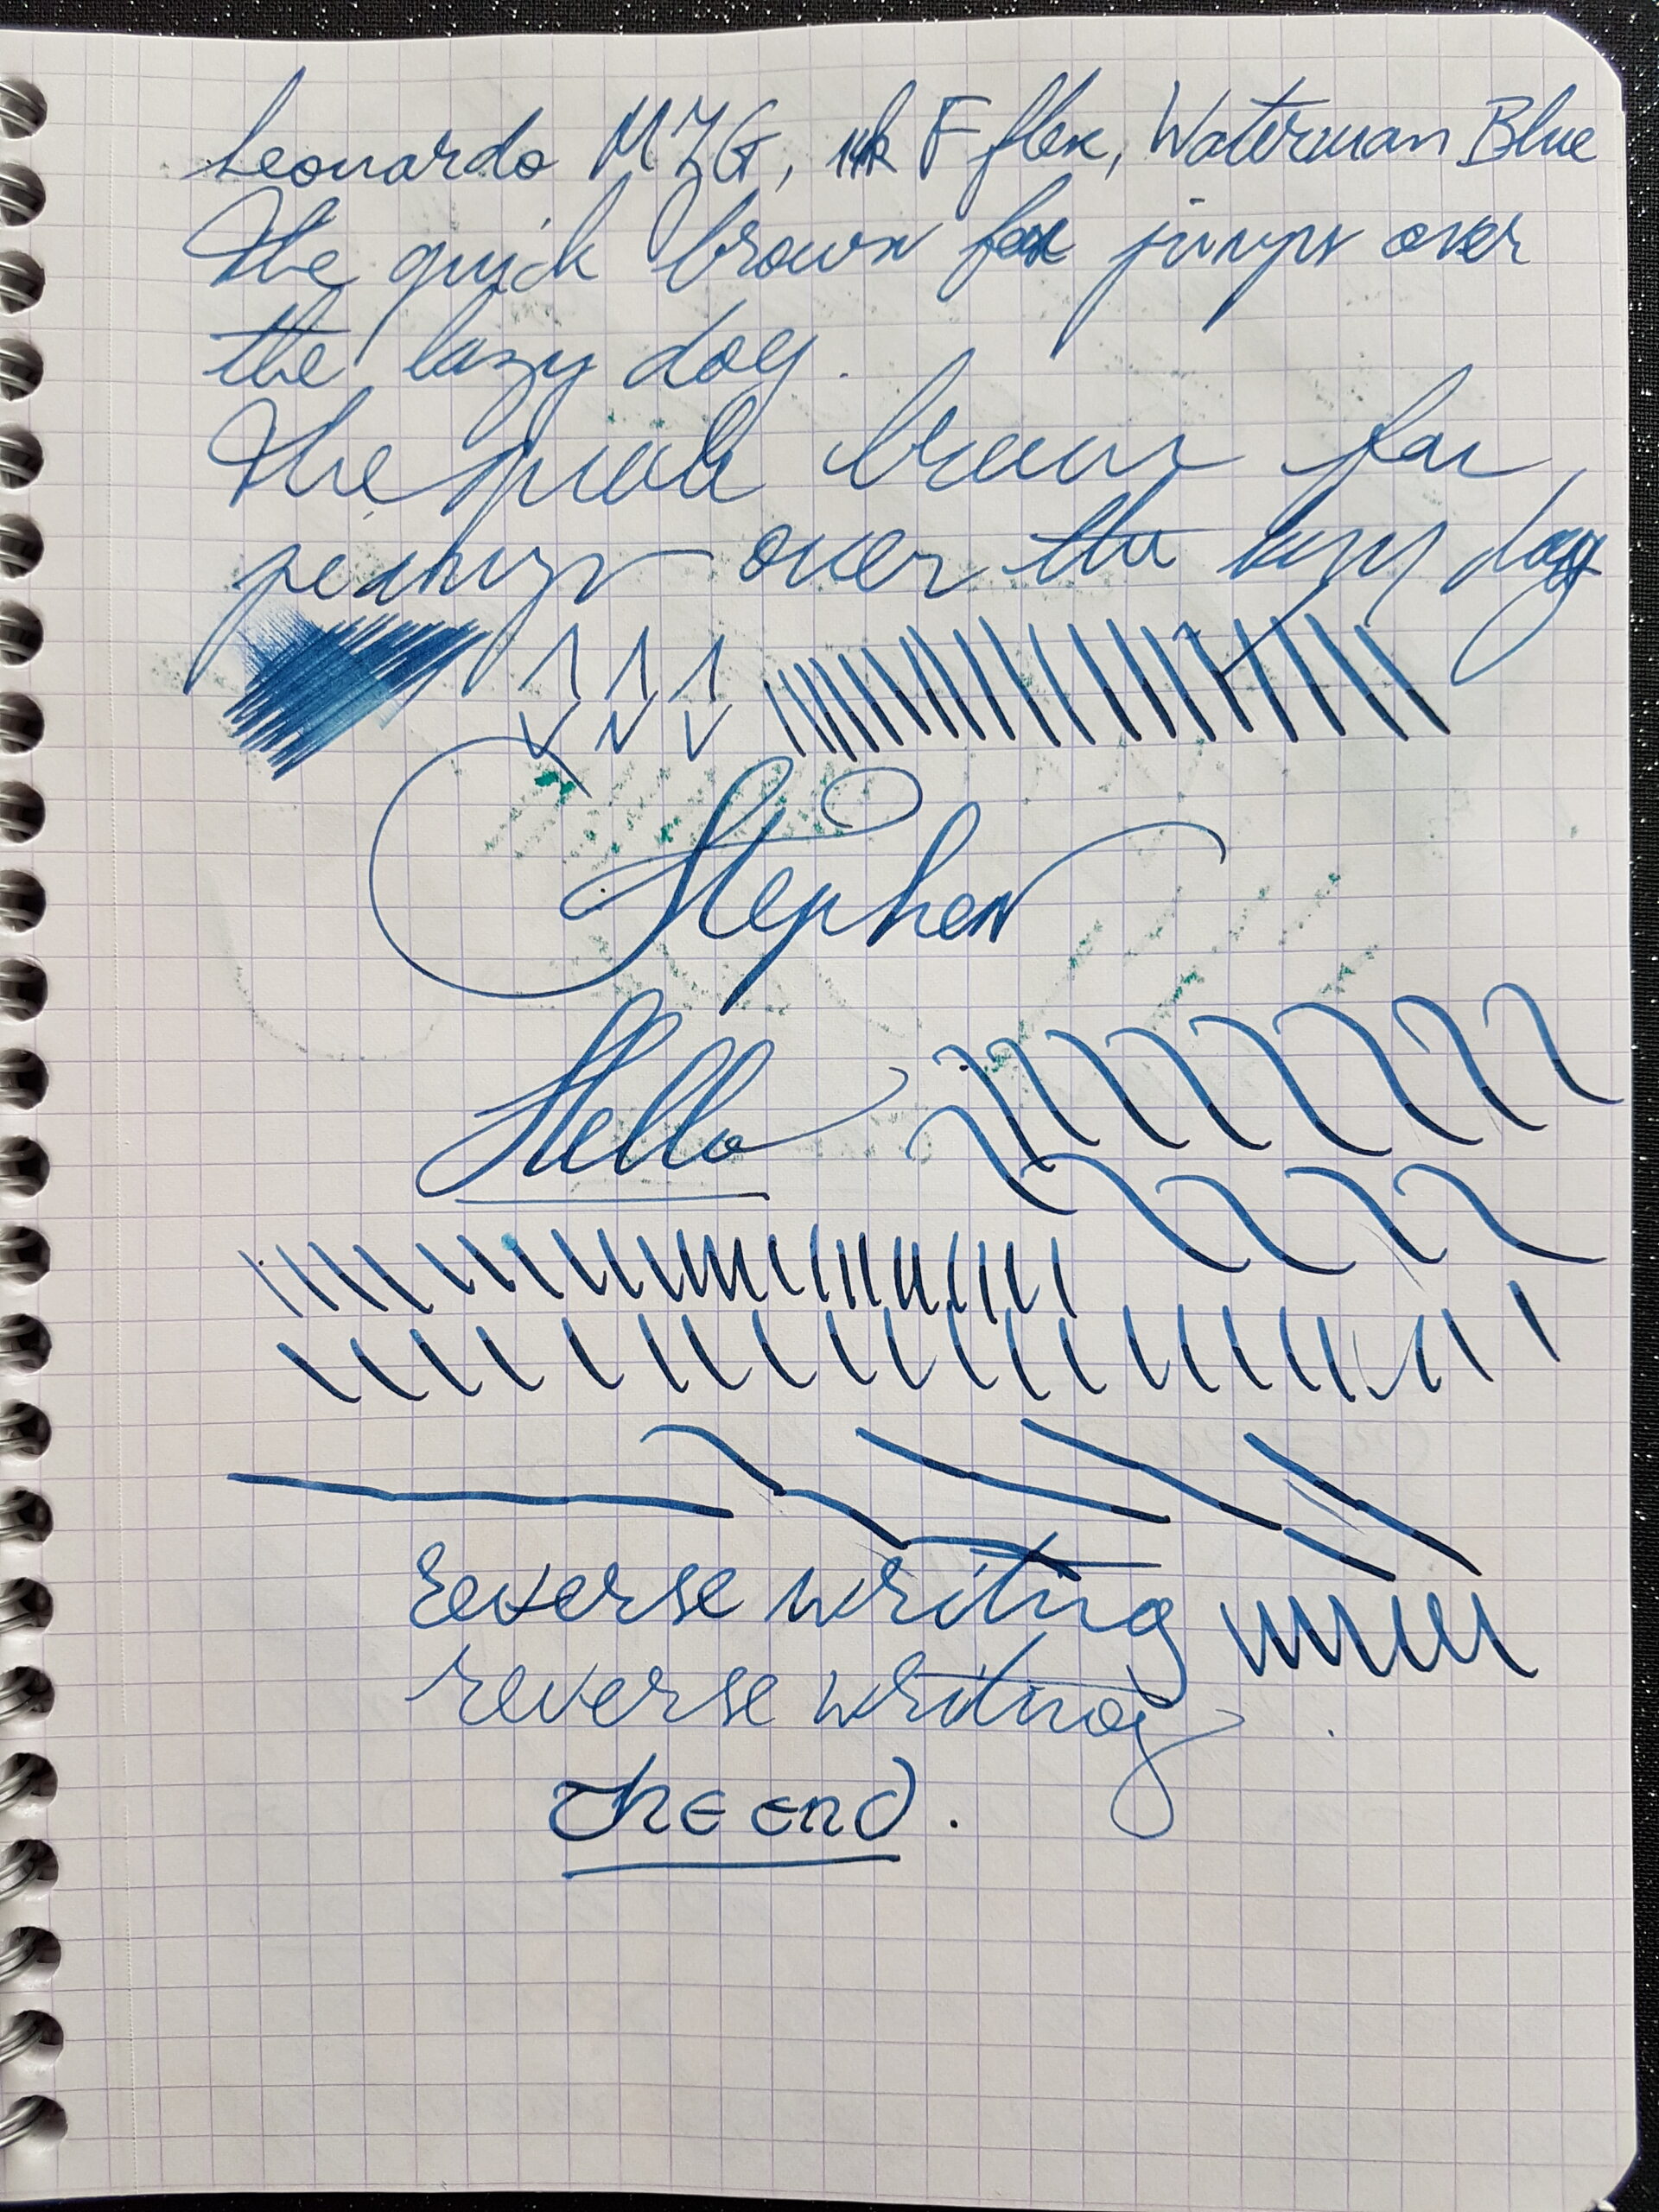 Leonardo MZG, 14k F flex, Waterman Blue
The quick brown fox jumps over
the lazy dog.
The quick brown fox
jumps over the lazy dog
Stephen
Hello
Reverse writing
reverse writing
The End.